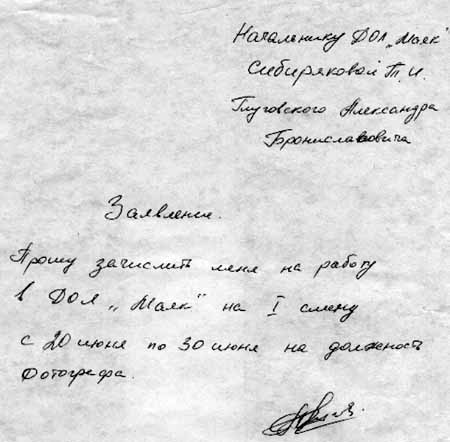 Начальнику ДОЛ „Маяк"
Сибиряковой Т.И.
Глуговского Александра
Брониславовича
Заявление.
Прошу зачислить меня на работу
в ДОЛ „Маяк" на I смену
с 20 июня по 30 июня на должность
Фотографа.